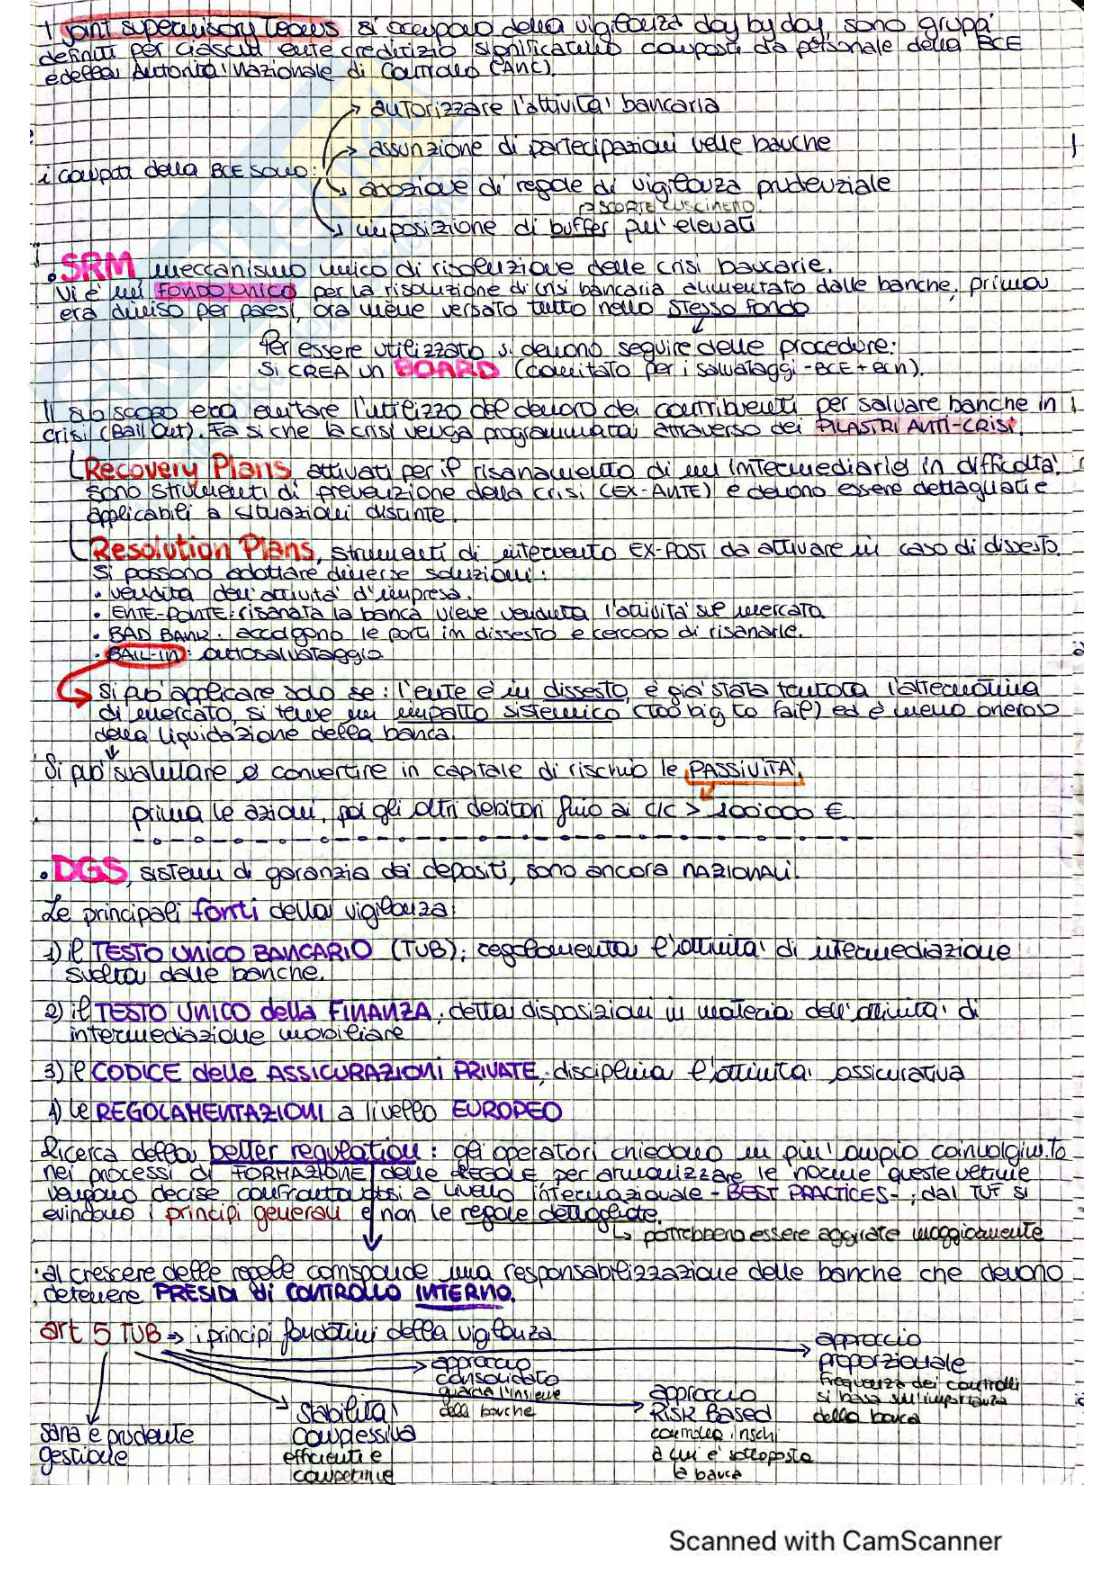 I Joint supervisory teams si occupano della vigilanza day by day, sono gruppi
definiti per ciascun ente creditizio significativo composti da personale della BCE
e della Autorità Nazionale di Controllo (ANC).
→ autorizzare l'attività bancaria
→ assunzione di partecipazioni nelle banche
i compiti della BCE sono:
↳ adozione di regole di vigilanza prudenziale
→ SCORTE CUSCINETTO
↳ imposizione di buffer più elevati
• SRM meccanismo unico di risoluzione delle crisi bancarie.
Vi è un FONDO UNICO per la risoluzione di crisi bancaria alimentato dalle banche, prima
era diviso per paesi, ora viene versato tutto nello stesso fondo
Per essere utilizzato si devono seguire delle procedure:
SI CREA UN BOARD (comitato per i salvataggi - BCE + BCN).
Il suo scopo era evitare l'utilizzo del denaro dei contribuenti per salvare banche in
crisi (Bail Out). Fa sì che la crisi venga programmata attraverso dei PILASTRI ANTI-CRISI.
Recovery Plans attivati per il risanamento di un intermediario in difficoltà.
sono strumenti di prevenzione della crisi (EX-ANTE) e devono essere dettagliati e
applicabili a situazioni distinte.
Resolution Plans, strumenti di intervento EX-POST da attivare in caso di dissesto.
Si possono adottare diverse soluzioni:
• vendita dell'attività d'impresa.
• ENTE-PONTE: risanata la banca viene venduta l'attività sul mercato
• BAD BANK: accolgono le parti in dissesto e cercano di risanarle.
• BAIL-IN: autosalvataggio
→ Si può applicare solo se: l'ente è in dissesto, è già stata tentata l'alternativa
di mercato, si teme un impatto sistemico (too big to fail) ed è meno oneroso
della liquidazione della banca.
Si può svalutare e convertire in capitale di rischio le PASSIVITÀ,
prima le azioni, poi gli altri debitori fino ai C/C > 100'000 €
• DGS, sistemi di garanzia dei depositi, sono ancora NAZIONALI.
Le principali fonti della vigilanza:
1) il TESTO UNICO BANCARIO (TUB); regolamenta l'attività di intermediazione
svolta dalle banche.
2) il TESTO UNICO della FINANZA, detta disposizioni in materia dell'attività di
intermediazione mobiliare
3) il CODICE delle ASSICURAZIONI PRIVATE, disciplina l'attività assicurativa
4) le REGOLAMENTAZIONI a livello EUROPEO
Ricerca della better regulation: gli operatori chiedono un più ampio coinvolgim.to
nei processi di FORMAZIONE delle REGOLE per armonizzare le norme queste ultime
vengono decise confrontandosi a livello internazionale - BEST PRACTICES -; dal TUF si
evincono i principi generali e non le regole dettagliate.
↳ potrebbero essere aggirate maggiormente
• al crescere delle regole corrisponde una responsabilizzazione delle banche che devono
detenere PRESIDI di CONTROLLO INTERNO.
art 5 TUB → i principi fondativi della vigilanza
sana e prudente
gestione
stabilità
complessiva
efficienti e
competitive
approccio
consolidato
guarda l'insieme
della banche
approccio
RISK Based
controlla i rischi
a cui è sottoposta
la banca
approccio
proporzionale
frequenza dei controlli
si basa sull'importanza
della banca
Scanned with CamScanner